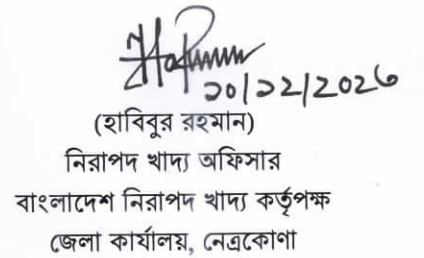 ২০/১২/2026
(হাবিবুর রহমান)
নিরাপদ খাদ্য অফিসার
বাংলাদেশ নিরাপদ খাদ্য কর্তৃপক্ষ
জেলা কার্যালয়, নেত্রকোণা